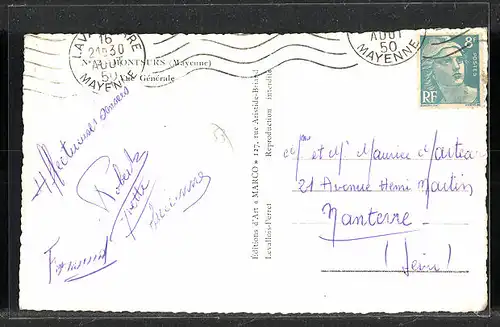 LAVAL GARE
16
21H30
AOUT
50
MAYENNE
AOUT
50
MAYENNE
MONTSURS (Mayenne)
Vue Générale
8F
RF
POSTES
Affectueuses
Robert
Yvette
Lucienne
Fernand
Éditions d'Art « MARCO » 127, rue Aristide-Briand
Levallois-Perret
Reproduction interdite
Mme et M. Maurice
21 Avenue Henri Martin
Nanterre
(Seine)